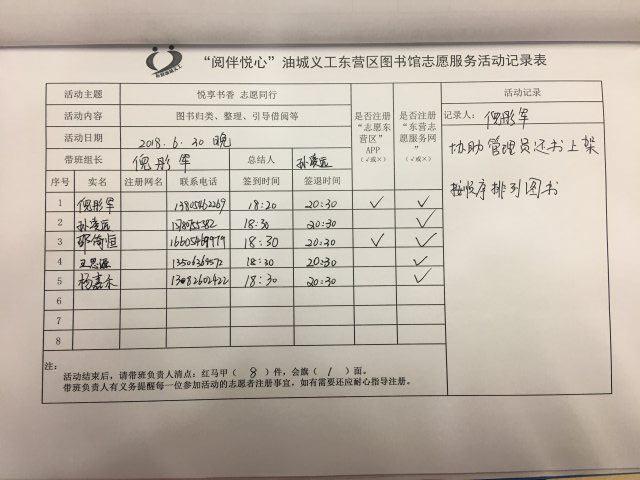 “阅伴悦心”油城义工东营区图书馆志愿服务活动记录表
活动主题 悦享书香 志愿同行 是否注册“志愿东营区”APP（√或×） 是否注册“东营志愿服务网”（√或×） 活动记录
活动内容 图书归类、整理、引导借阅等 记录人：倪彤军
活动日期 2018.6.30 晚
带班组长 倪彤军 总结人 孙崇远
协助管理员还书上架
按顺序排列图书
序号 实名 注册网名 联系电话 签到时间 签退时间
1 倪彤军 13805462269 18:20 20:30 √ √
2 18:30 20:30 √
3 18:30 20:30 √ √
4 18:30 20:30 √
5 18:30 20:30 √
6
7
8
注：
活动结束后，请带班负责人清点：红马甲（ 8 ）件，会旗（ 1 ）面。
带班负责人有义务提醒每一位参加活动的志愿者注册事宜，如有需要还应耐心指导注册。